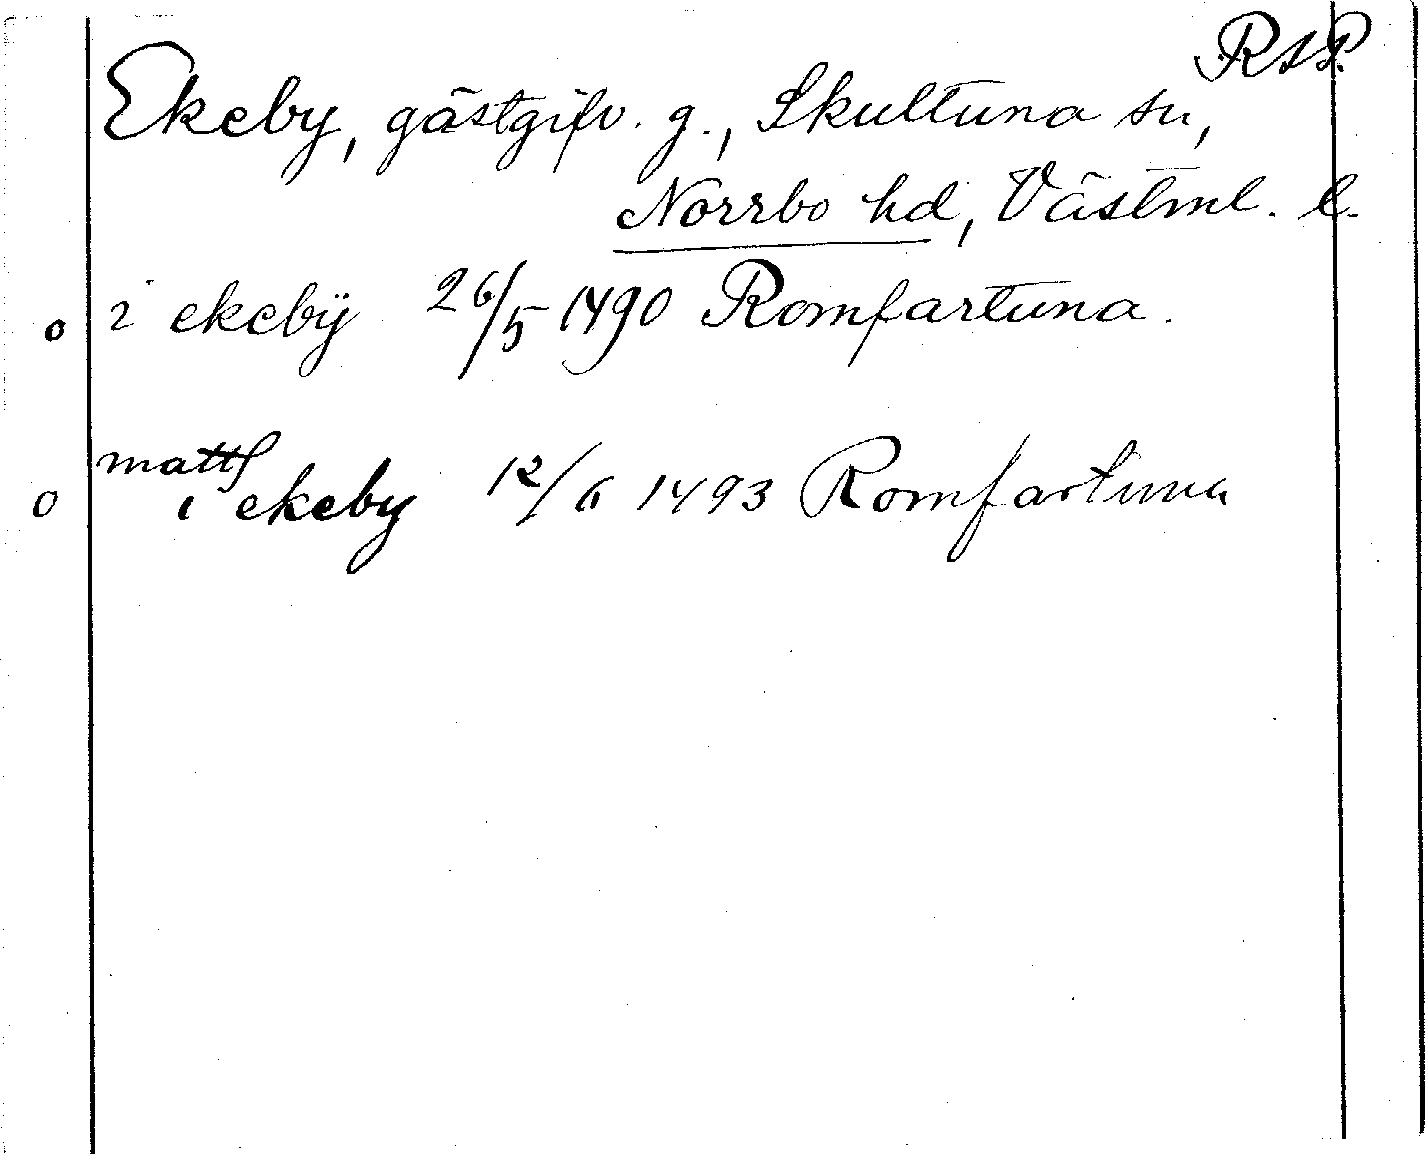 RAP.
Ekeby, gästgifv. g., Skultuna sn,
Norrbo hd, Västml. l.
o i ekebÿ 26/5 1490 Romfartuna.
matts
o i ekeby 12/6 1493 Romfartuna